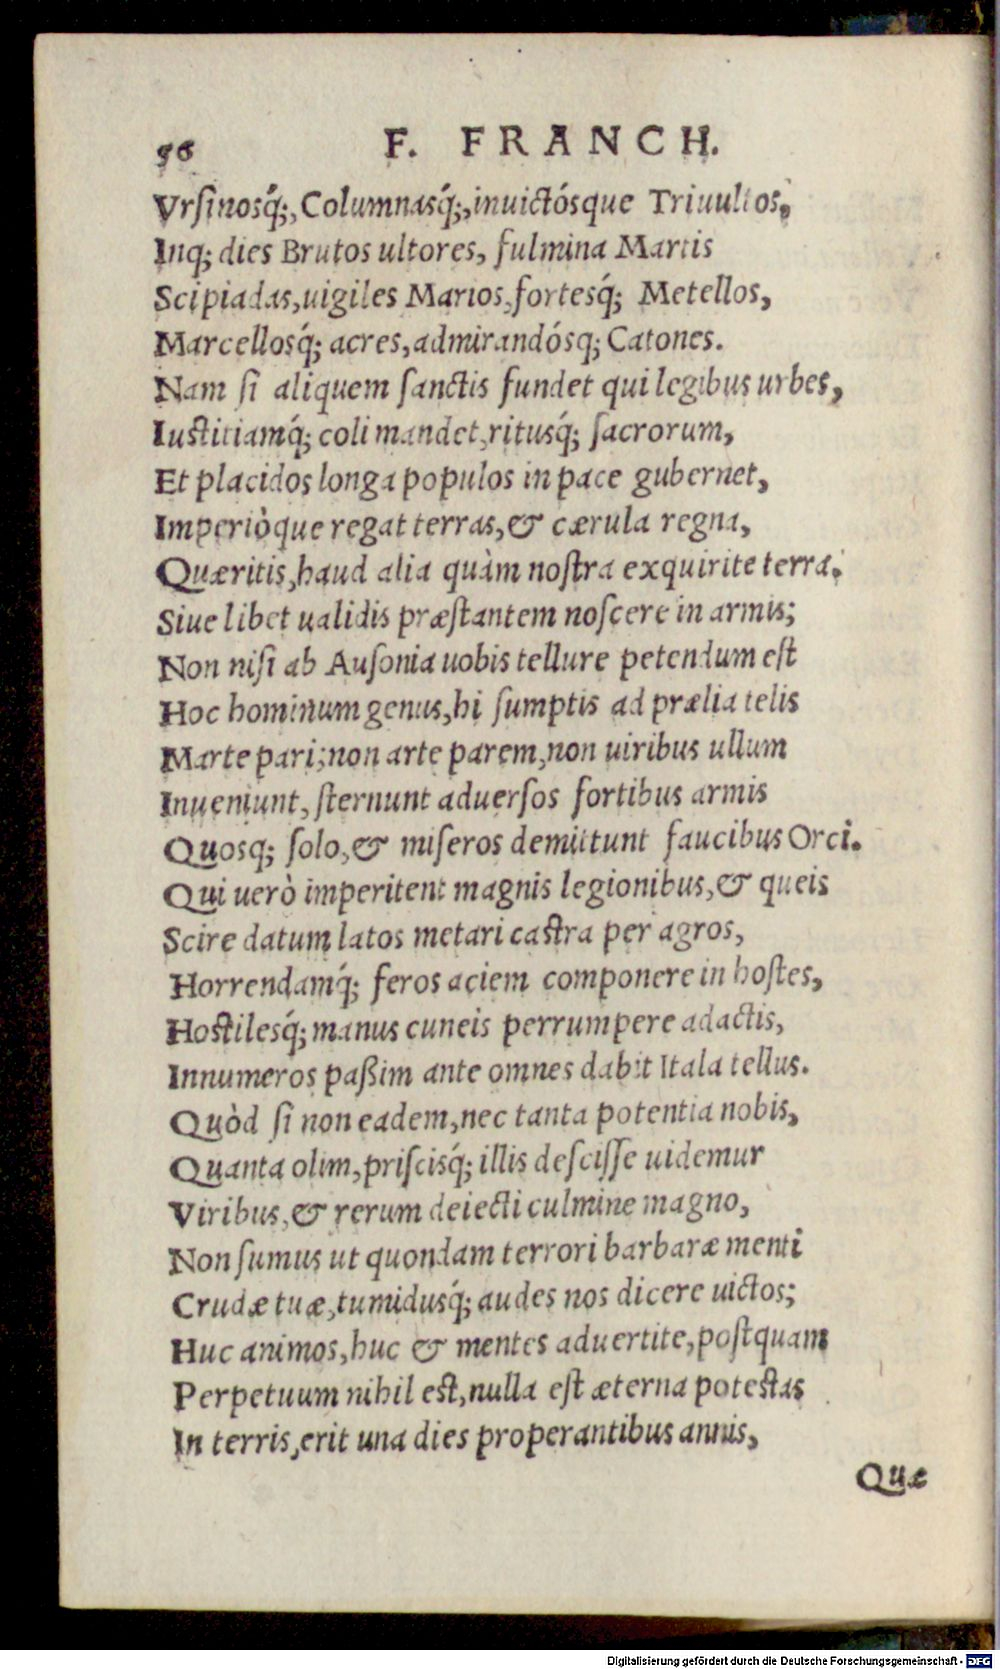 56 F. FRANCH.
Vrſinosq́;, Columnasq́;, inuictósque Triuultios,
Inq; dies Brutos ultores, fulmina Martis
Scipiadas, uigiles Marios, fortesq́; Metellos,
Marcellosq́; acres, admirandósq; Catones.
Nam ſi aliquem ſanctis fundet qui legibus urbes,
Iuſtitiamq́; coli mandet, ritusq́; ſacrorum,
Et placidos longa populos in pace gubernet,
Imperiòque regat terras, & cærula regna,
Quæritis, haud alia quàm noſtra exquirite terra.
Siue libet ualidis præſtantem noſcere in armis;
Non niſi ab Auſonia uobis tellure petendum eſt
Hoc hominum genus, hi ſumptis ad prælia telis
Marte pari; non arte parem, non uiribus ullum
Inueniunt, ſternunt aduerſos fortibus armis
Quosq; ſolo, & miſeros demittunt faucibus Orci.
Qui uerò imperitent magnis legionibus, & queis
Scire datum latos metari caſtra per agros,
Horrendamq́; feros aciem componere in hoſtes,
Hoſtilesq́; manus cuneis perrumpere adactis,
Innumeros paßim ante omnes dabit Itala tellus.
Quòd ſi non eadem, nec tanta potentia nobis,
Quanta olim, priſcisq́; illis deſciſſe uidemur
Viribus, & rerum deiecti culmine magno,
Non ſumus ut quondam terrori barbaræ menti
Crudæ tuæ, tumidusq́; audes nos dicere uictos;
Huc animos, huc & mentes aduertite, poſtquam
Perpetuum nihil eſt, nulla eſt æterna poteſtas
In terris, erit una dies properantibus annis,
Quæ
Digitalisierung gefördert durch die Deutsche Forschungsgemeinschaft - DFG